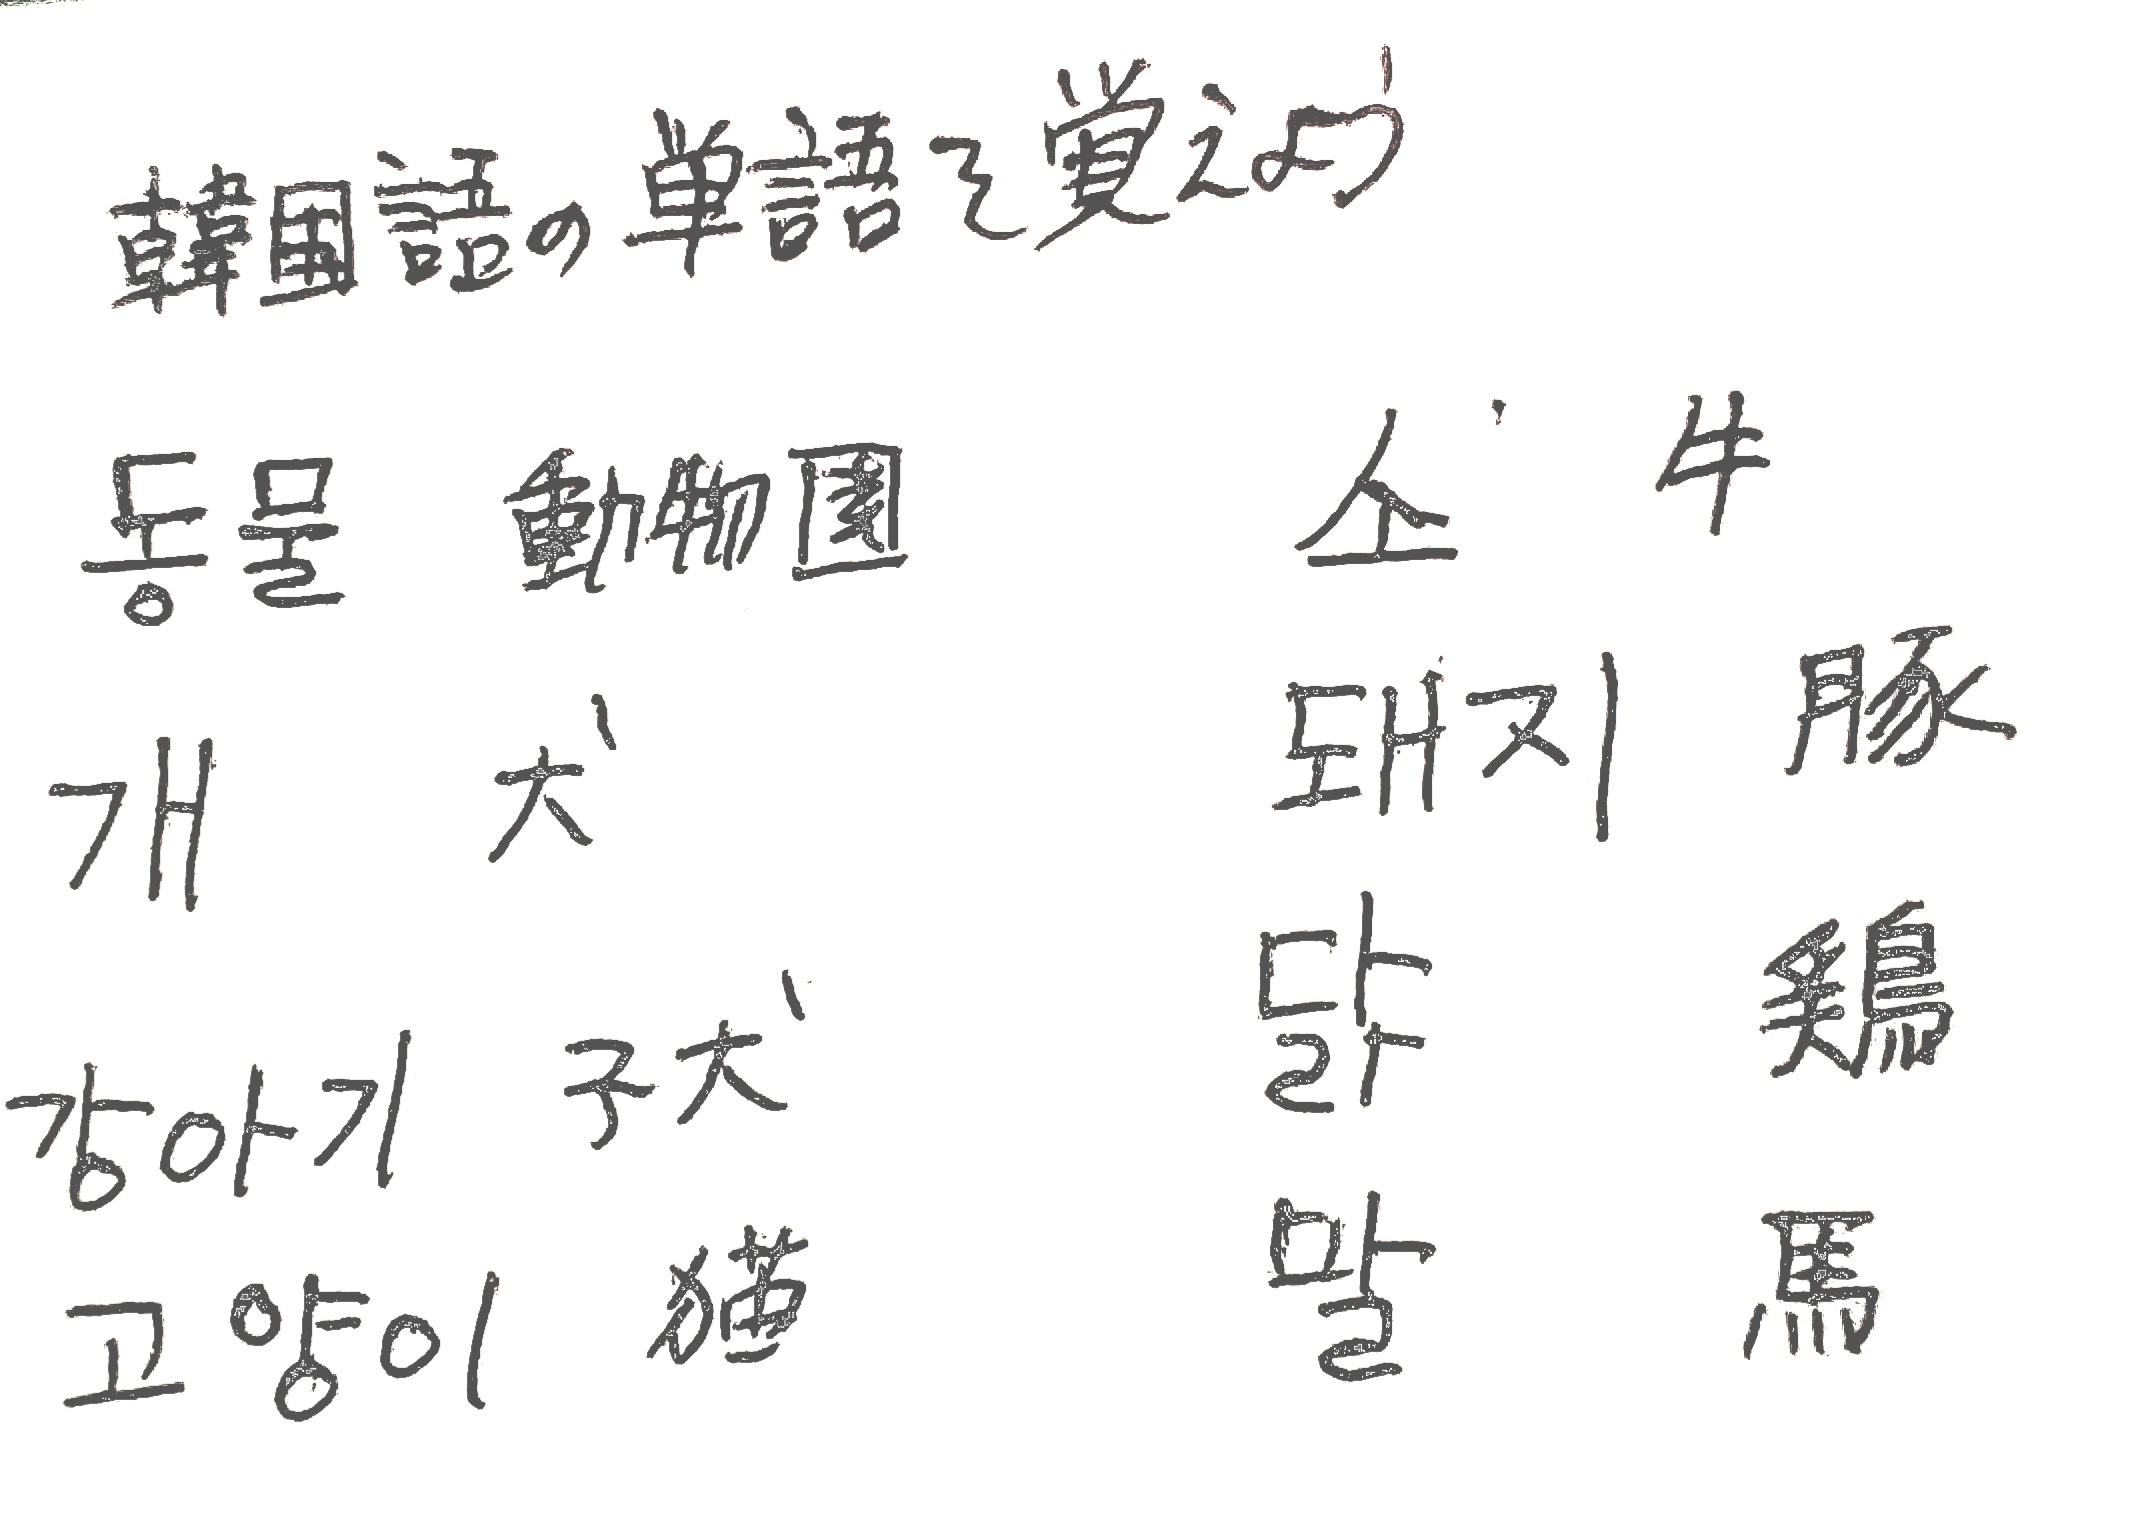 韓国語の単語を覚えよう
동물 動物園
개 犬
강아기 子犬
고양이 猫
소 牛
돼지 豚
닭 鶏
말 馬